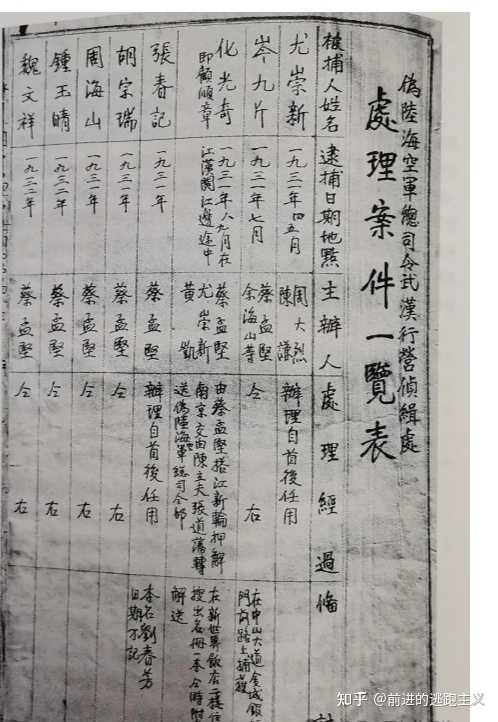 偽陸海空軍總司令武漢行營偵緝處
處理案件一覽表
被捕人姓名 逮捕日期地點 主辦人 處理經過 備
尤崇新 一九三一年四五月 周大烈 陳謙 辦理自首後任用
岑九片 一九三一年七月 蔡孟堅 余海山等 仝右 在中山大道金城銀 門前路上捕獲
化光奇 即顧順章 一九三一年八九月在 江漢關江邊途中 蔡孟堅 尤崇新 黃凱 由蔡孟堅搭江新輪押解 南京交由陳立夫張道藩轉 送偽陸海軍總司令部 在新世界飯店 搜出名冊一本仝時附 解送
張春記 一九三一年 蔡孟堅 辦理自首後任用 本名劉春芳 日期不記
胡宗瑞 一九三一年 蔡孟堅 仝右
周海山 一九三一年 蔡孟堅 仝右
鍾玉晴 一九三二年 蔡孟堅 仝右
魏文祥 一九三二年 蔡孟堅 仝右
知乎 @前进的逃跑主义